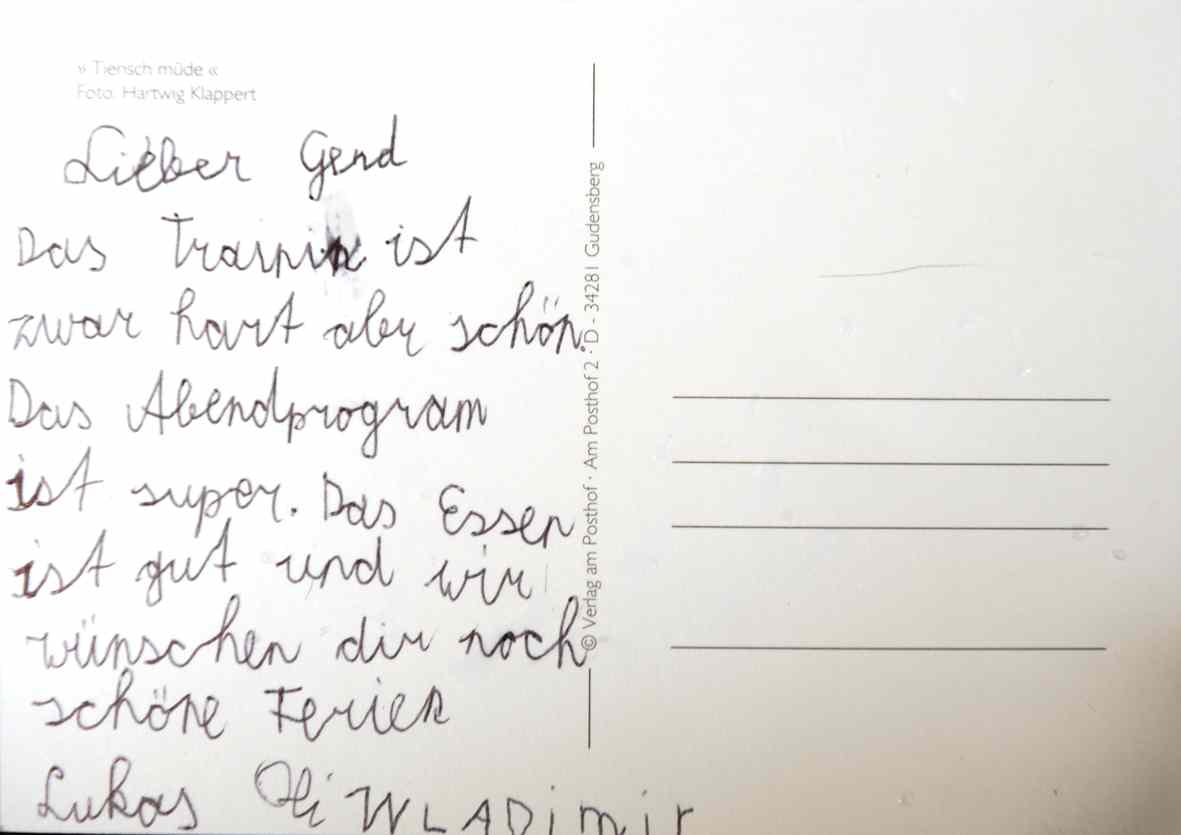 » Tiensch müde «
Foto: Hartwig Klappert
Lieber Gerd
Das Trainin ist
zwar hart aber schön.
Das Abendprogram
ist super. Das Essen
ist gut und wir
wünschen dir noch
schöne Ferien
Lukas Oli WLADimir
© Verlag am Posthof · Am Posthof 2 · D - 34281 Gudensberg